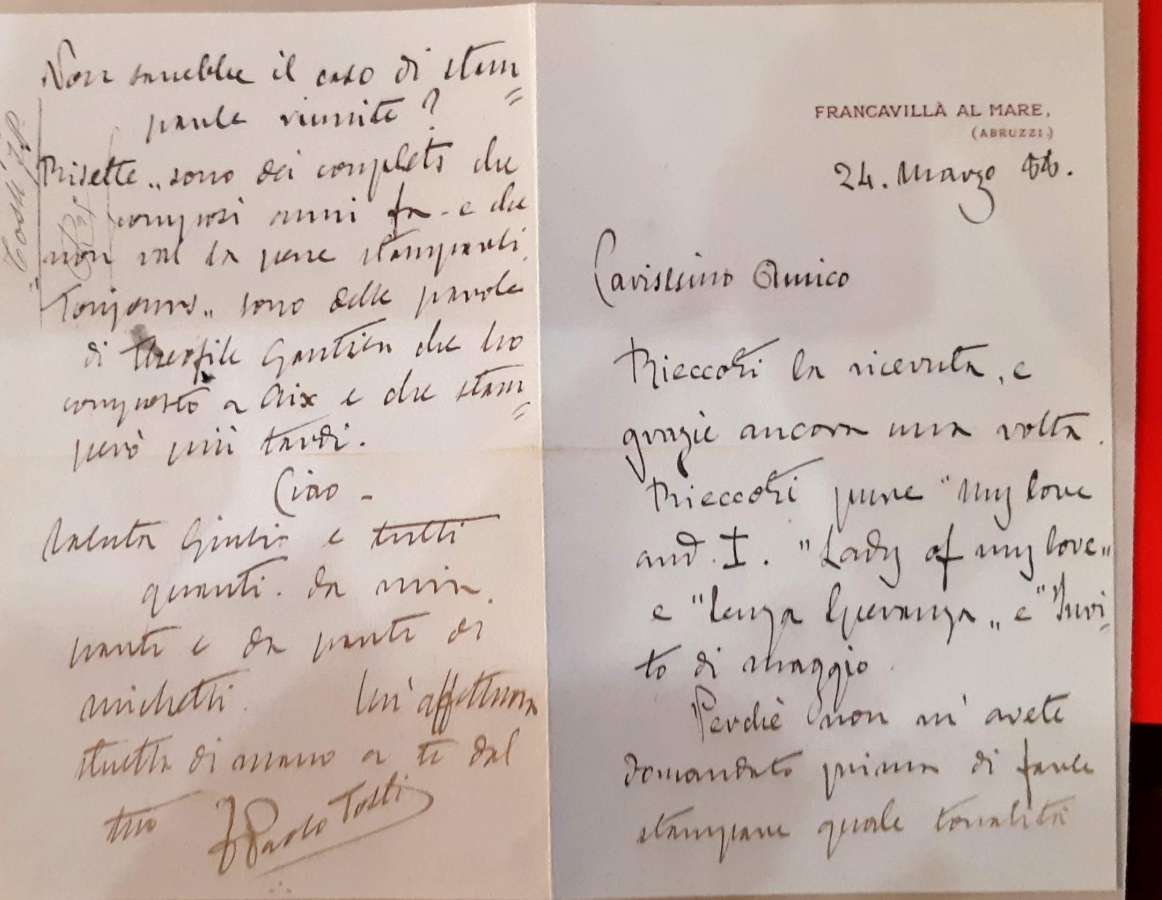 FRANCAVILLÀ AL MARE,
(ABRUZZI.)
24. Marzo 86.
Carissimo Amico
Rieccoti la ricevuta, e
grazie ancora una volta.
Rieccoti pure "My love
and I. "Lady of my love„
e "Senza Speranza„ e "Invi-
to di maggio
Perchè non m'avete
domandato prima di farle
stampare quale tonalità
Non sarebbe il caso di stam=
parle riunite?
Risette„ sono dei couplets che
composi anni fa e che
non val la pena stamparli.
Toujours„ sono delle parole
di Theofile Gautier che ho
composto a Aix e che stam=
però più tardi.
Ciao -
Saluta Giulio e tutti
quanti. da mia
parte e da parte di
Michetti. Un'affettuosa
stretta di mano a te dal
tuo FPaolo Tosti
Tosti FP.